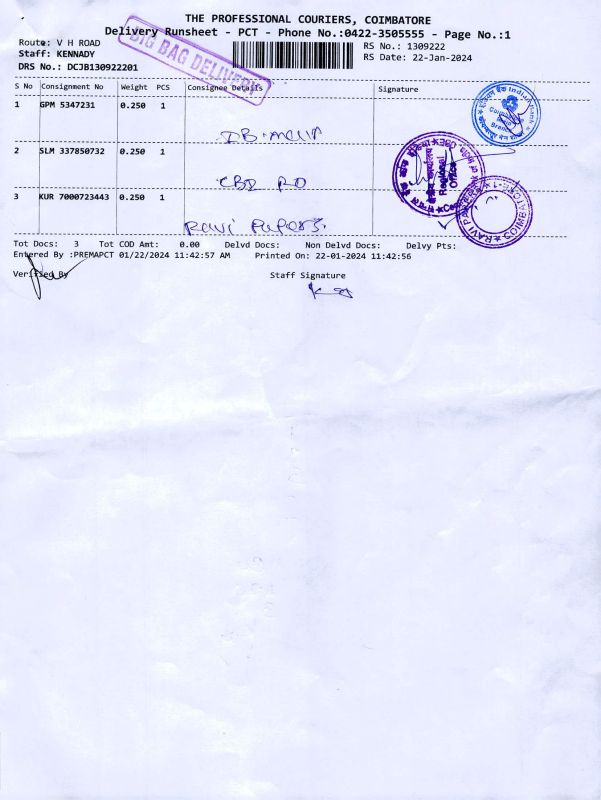 THE PROFESSIONAL COURIERS, COIMBATORE
Delivery Runsheet - PCT - Phone No.:0422-3505555 - Page No.:1
Route: V H ROAD
Staff: KENNADY
DRS No.: DCJB130922201
RS No.: 1309222
RS Date: 22-Jan-2024
BIG BAG DELIVERY
S No Consignment No Weight PCS Consignee Details Signature
1 GPM 5347231 0.250 1
2 SLM 337850732 0.250 1 CBD RO
3 KUR 7000723443 0.250 1 Ravi Papers.
Regional Office
COIMBATORE-1
Tot Docs: 3 Tot COD Amt: 0.00 Delvd Docs: Non Delvd Docs: Delvy Pts:
Entered By :PREMAPCT 01/22/2024 11:42:57 AM Printed On: 22-01-2024 11:42:56
Verified By Staff Signature